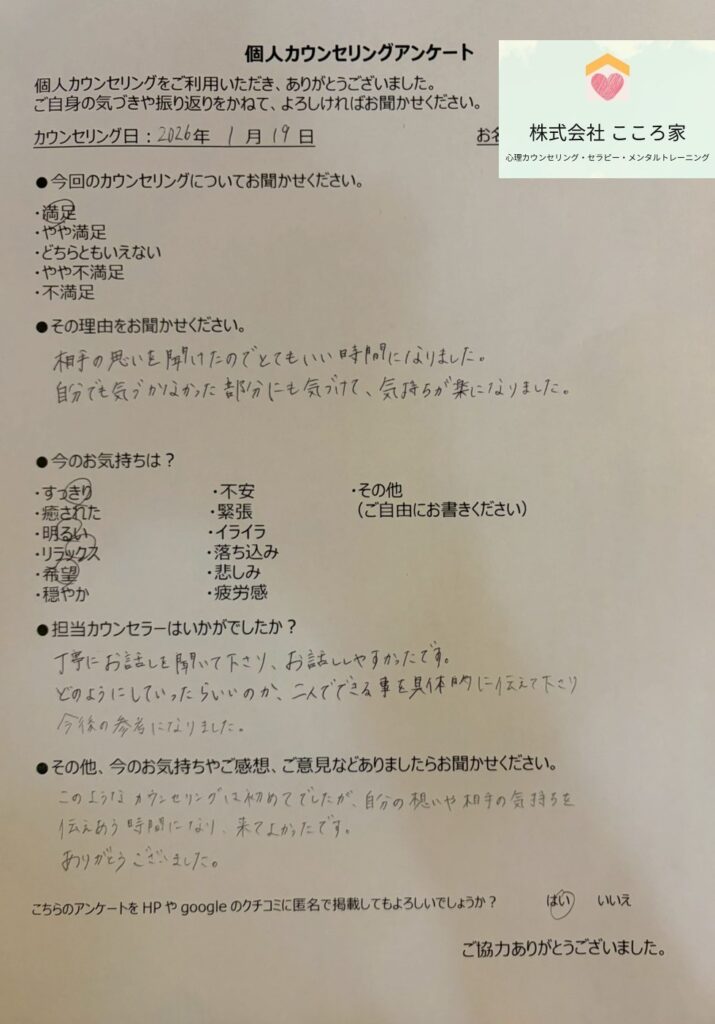 個人カウンセリングアンケート
個人カウンセリングをご利用いただき、ありがとうございました。
ご自身の気づきや振り返りをかねて、よろしければお聞かせください。
カウンセリング日：2026年 1月 19日 お名
株式会社 こころ家
心理カウンセリング・セラピー・メンタルトレーニング
●今回のカウンセリングについてお聞かせください。
・満足
・やや満足
・どちらともいえない
・やや不満足
・不満足
●その理由をお聞かせください。
相手の思いを聞けたのでとてもいい時間になりました。
自分でも気づかなかった部分にも気づけて、気持ちが楽になりました。
●今のお気持ちは？
・すっきり ・不安 ・その他
・癒された ・緊張 （ご自由にお書きください）
・明るい ・イライラ
・リラックス ・落ち込み
・希望 ・悲しみ
・穏やか ・疲労感
●担当カウンセラーはいかがでしたか？
丁寧にお話しを聞いて下さり、お話ししやすかったです。
どのようにしていったらいいのか、二人でできる事を具体的に伝えて下さり
今後の参考になりました。
●その他、今のお気持ちやご感想、ご意見などありましたらお聞かせください。
このようなカウンセリングは初めてでしたが、自分の想いや相手の気持ちを
伝えあう時間になり、来てよかったです。
ありがとうございました。
こちらのアンケートをHPやgoogleのクチコミに匿名で掲載してもよろしいでしょうか？ はい いいえ
ご協力ありがとうございました。